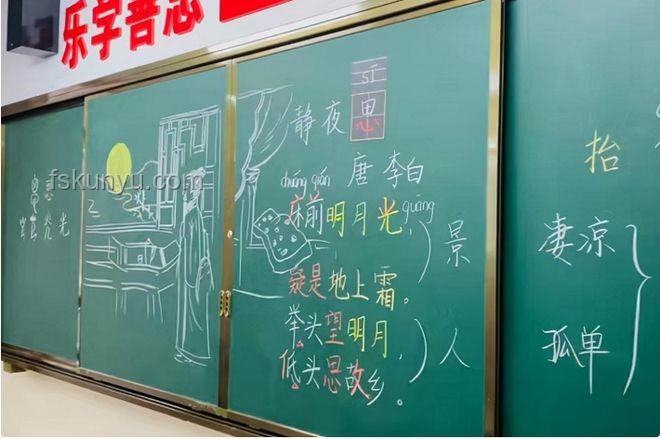 乐学善思
fskunyu.com
光
sī
静夜思
唐 李白
chuáng qián
guāng
床前明月光，
疑是地上霜。
景
举头望明月，
低头思故乡。
人
抬
凄凉
孤单